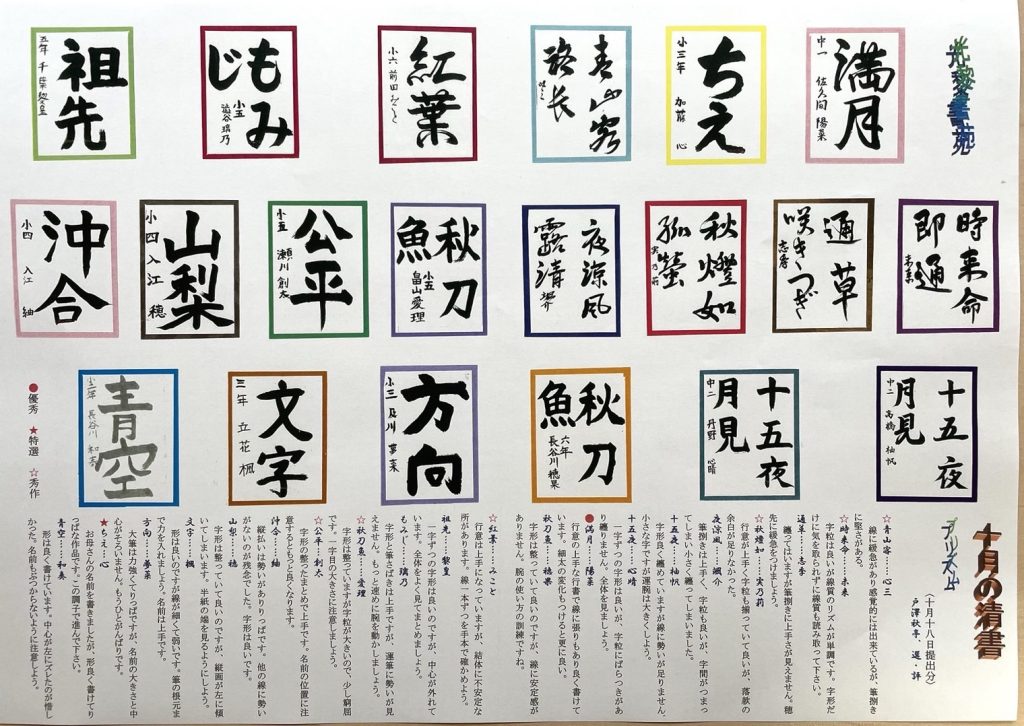 十月の清書
(十月十八日提出分)
戸澤秋亭、選・評
満月
中一 佐久間 陽菜
ちえ
小三年 加藤 心
春山客
路長
紅葉
小六 前田
もみ
じ
小五 澁谷 璃乃
祖先
五年 千葉 黎皇
時来命
即通
未来
通草
咲きつぎ
志季
秋燈如
孤螢
実乃莉
夜涼風
露清
秋刀
魚
小五 畠山 愛理
公平
小五 瀬川 創太
山梨
小四 入江 穂
沖合
小四 入江 紬
十五夜
月見
中二 高橋 柚帆
十五夜
月見
中二 丹野 心晴
秋刀
魚
六年 長谷川 穂果
方向
小三 及川 夢菜
文字
三年 立花 楓
青空
小二年 長谷川 和奏
☆青山客……心三
線に緩急があり感覚的には出来ているが、筆捌き
に堅さがある。
☆時来命……未来
字粒は良いが線質のリズムが単調です。字形だ
けに気を取られずに線質も読み取って下さい。
通草……志季
纏ってはいますが筆捌きに上手さが見えません。穂
先に緩急をつけましょう。
☆秋燈如……実乃莉
行意が上手く字粒も揃っていて良いが、落款の
余白が足りなかった。
夜涼風……颯介
筆捌きも上手く、字粒も良いが、字間がつまっ
てしまい小さく纏ってしまいました。
十五夜……柚帆
字形も良く纏めていますが線に勢いが足りません。
小さな字ですが運腕は大きくしましょう。
十五夜……心晴
一字ずつの字形は良いのですが、字粒にばらつきがあ
り纏りません。全体を見ましょう。
●満月……陽菜
行意の上手な行書で線に張りもあり良く書けて
います。細太の変化もつけると更に良い。
秋刀魚……穂果
字形は整っていて良いのですが、線に安定感が
ありません。腕の使い方の訓練ですね。
☆紅葉……みこと
行意は上手になっていますが、結体に不安定な
所があります。線一本ずつを手本で確かめよう。
祖先……黎皇
一字ずつの字形は良いのですが、中心が外れて
います。全体をよく見てまとめましょう。
もみじ……璃乃
字形と筆さばきは上手ですが、運筆に勢いが見
えません。もっと速めに腕を動かしましょう。
☆秋刀魚……愛理
字形は整っていますが字粒が大きいので、少し窮屈
です。一字目の大きさに注意しましょう。
☆公平……創太
字形の整ったまとめで上手です。名前の位置に注
意するともっと良くなります。
沖合……紬
縦払いは勢いがありりっぱです。他の線に勢い
がないのが残念でした。
山梨……穂
字形は整っています。字粒も良いですが、縦画が左に傾
いてしまいます。半紙の端を見るようにしよう。
文字……楓
形は良いのですが線が細くて弱いです。筆の根元ま
で力を入れましょう。名前は上手です。
方向……夢菜
大筆は力強くてりっぱですが、名前の大きさと中
心がそろいません。もうひとがんばりです。
★ちえ……心
お母さんの名前を書きましたが、形良く書けてり
っぱな作品です。この調子で進んで下さい。
青空……和奏
形は良く書けています。中心が左にズレたのが惜し
かった。名前もぶつからないように注意しよう。
●優秀 ★特選 ☆秀作